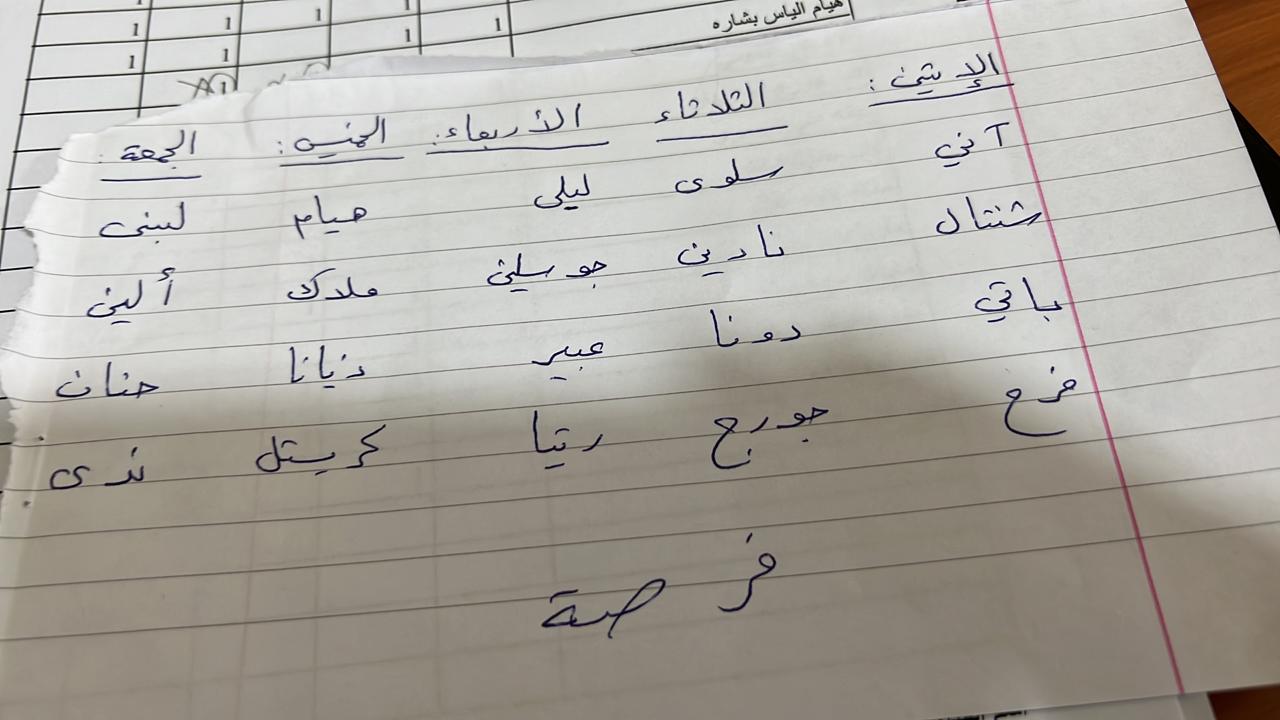 هيام الياس بشاره
1 1 1 1
1 1 1
الإثنين: الثلاثاء الأربعاء: الخميس: الجمعة:
آني سلوى ليلى هيام لبنى
شنتال نادين جوسلين ملاك ألين
باتي دونا عبير ديانا حنان
فرح جورج ريتا كريستل ندى
فرصة